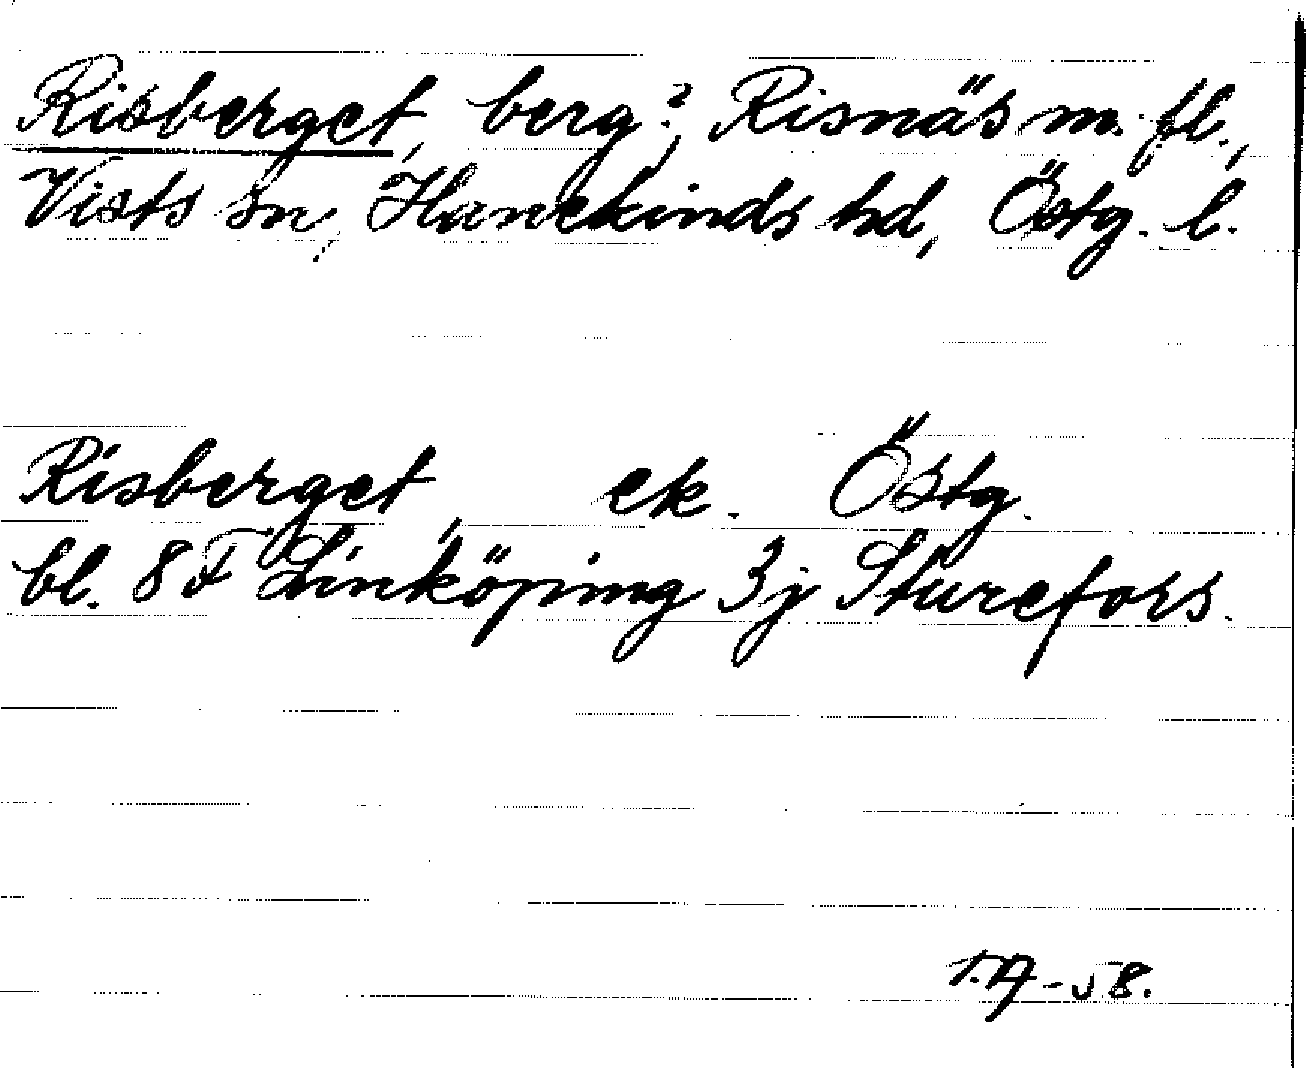 Risberget, berg?, Risnäs m. fl.,
Vists sn, Hanekinds hd, Östg. l.
Risberget, ek. Östg.
bl. 8 F Linköping 3j Sturefors.
T.A-58.